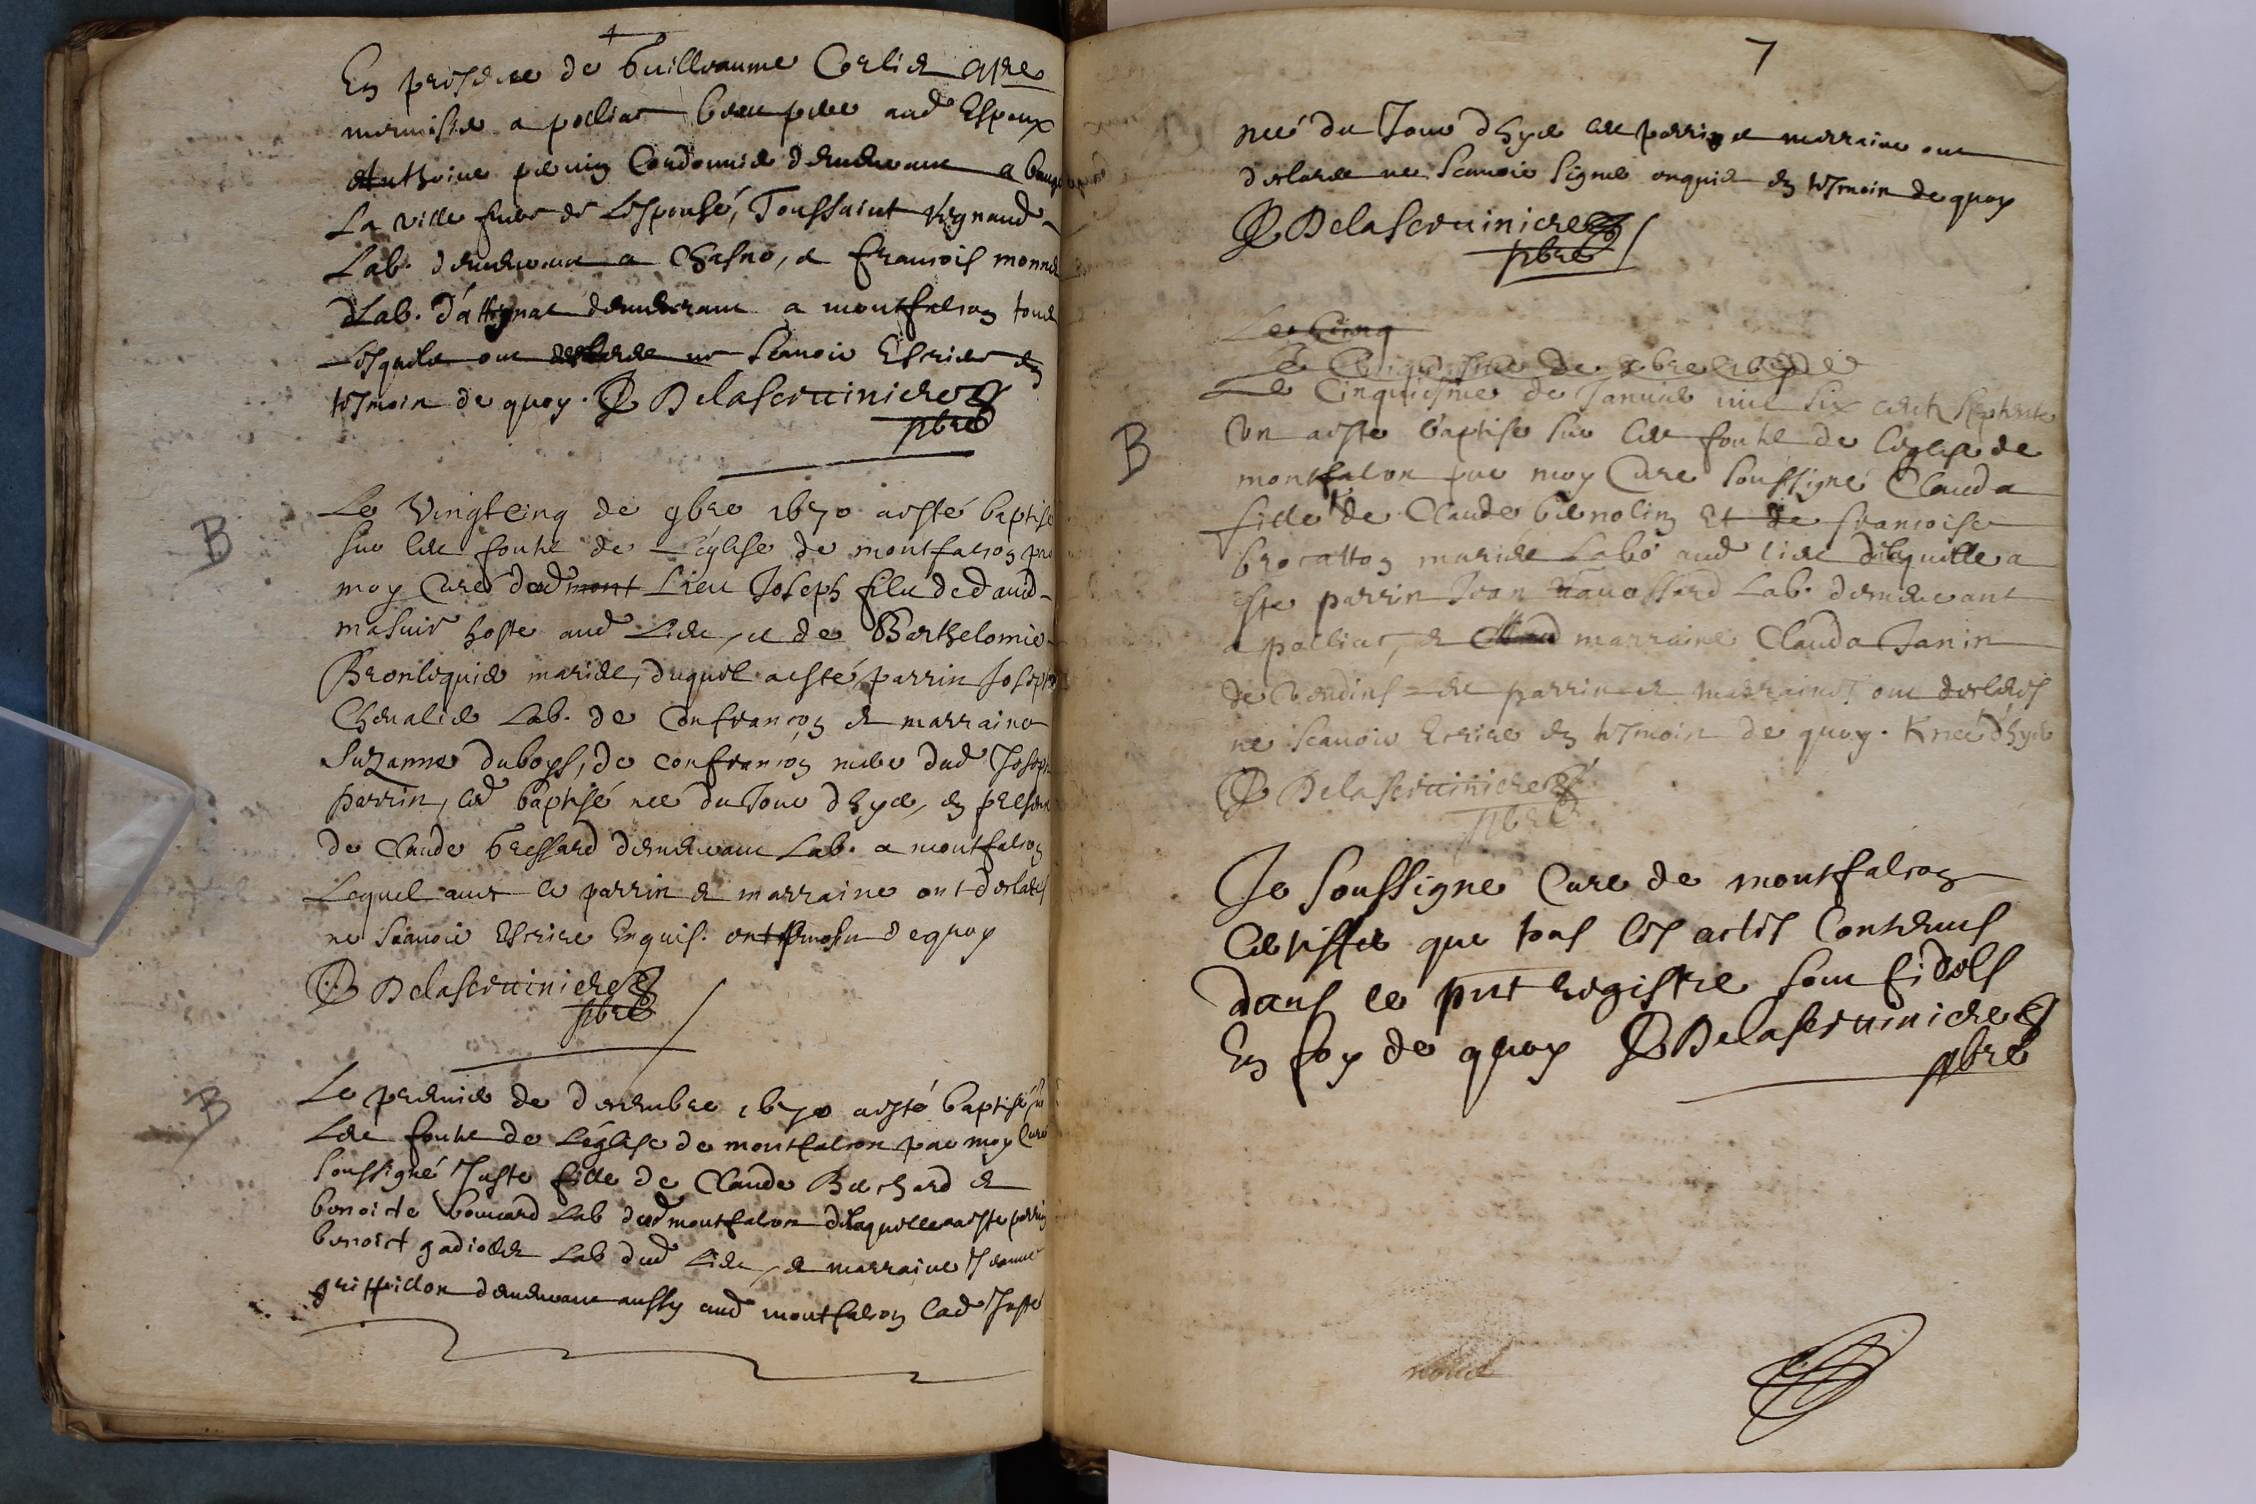 En presence de Guillaume Corlier
a polliat beau pere aud Espoux
Anthoine Cordonnier demeurant a
La ville frere de Lespousé, Toussaint Vignaud
Lab. demeurant a Chasno, et francois monn
dLab. d'attignat demeurant a montfalcon tous
Lesquels ont declare ne scauoir Escrire en
tesmoin de quoy. DelaSeruiniere
pbre
B
Le Vingtcinq de 9bre 1670 a esté baptise
sur les fontz de Léglise de montfalcon par
moy Curé dud mont Lieu Joseph filz de dauid
masuir hoste aud Lieu, et de Barthelomie
Bronliquier mariez, duquel a esté parrin Joseph
Cheualier Lab. de Confrancon et marraine
Suzanne duboys, de confrancon mere dud Joseph
parrin, led baptisé né du Jour d'hyer, en presence
de Claude bressard demeurant Lab. a montfalcon
Lequel auec le parrin et marraine ont declarés
ne scauoir Escrire Enquis. en tesmoin de quoy
DelaSeruiniere
pbre
B
Le premier de decembre 1670 a esté baptisé sur
Les fontz de Léglise de montfalcon par moy Curé
soussigné Juste fille de Claude Bochard et
benoiste bouuard Lab dud montfalcon de laquelle a este parrin
benoist gadiollet Lab dud Lieu, et marraine Jeanne
griffillon demeurant aussy aud montfalcon lad Juste
7
née du Jour d'hyer les parrin et marraine ont
declarez ne scauoir signer enquis en tesmoin de quoy
DelaSeruiniere
pbre
Le Cinq
Le Cinquiesme de xbre
Le Cinquiesme de Januier mil six centz septente
B
Un a este baptise sur les fontz de léglise de
montfalcon par moy Curé soussigné Clauda
fille de Claude bernolin Et de francoise
brocatton mariez Labo aud lieu de laquelle a
este parrin Jean Lab. demeurant
a polliat, et marraine Clauda Janin
de vendins les parrin et marraines ont declarés
ne scauoir Escrire en tesmoin de quoy. née d'hyer
DelaSeruiniere
pbre
Je soussigne Curé de montfalcon
Certiffie que tous les actes Contenus
dans le pnt registre sont fidels
En foy de quoy DelaSeruiniere
pbre